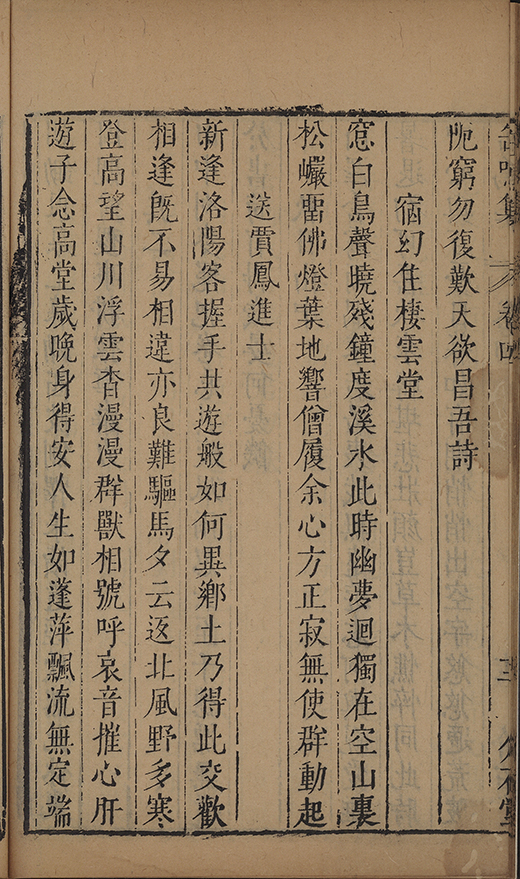 阨窮勿復歎天欲昌吾詩
宿幻住棲雲堂
窓白鳥聲曉殘鐘度溪水此時幽夢迴獨在空山裏
松巖畱佛燈葉地響僧履余心方正寂無使群動起
送賈鳳進士
新逢洛陽客握手共遊般如何異鄉土乃得此交歡
相逢旣不易相違亦良難驅馬夕云返北風野多寒
登高望山川浮雲杳漫漫群獸相號呼哀音摧心肝
遊子念高堂歲晚身得安人生如蓬萍飄流無定端